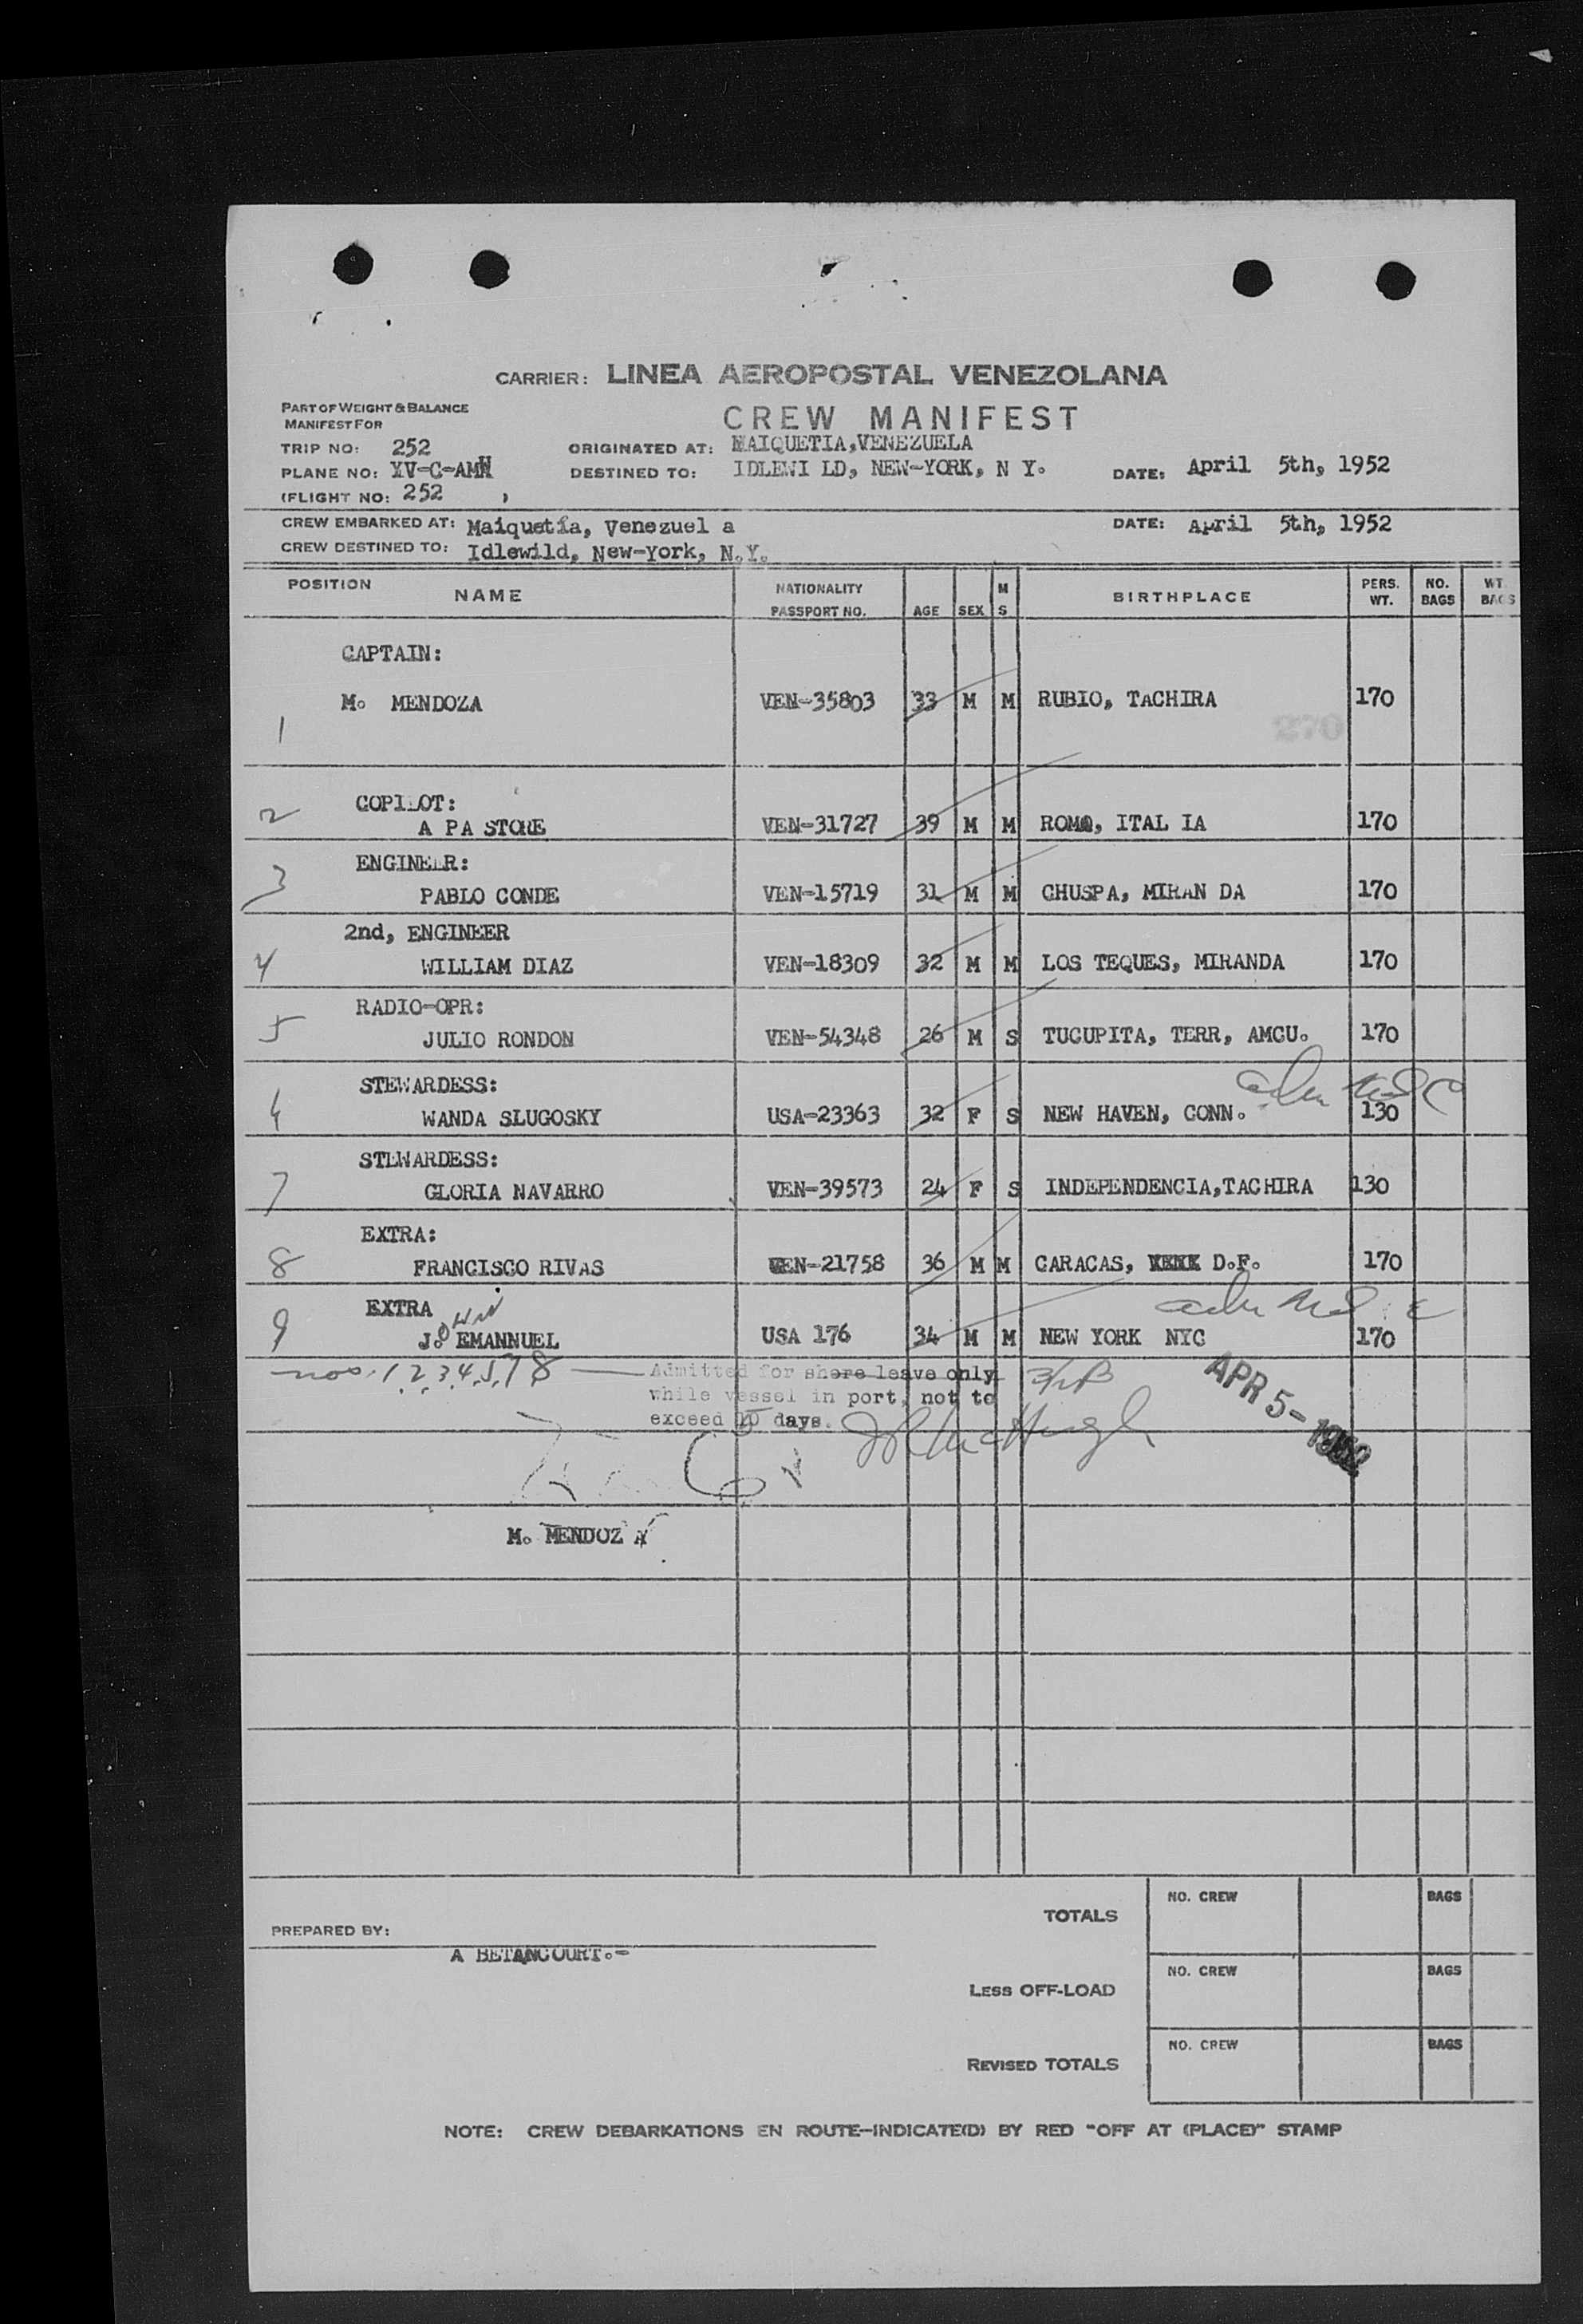 CARRIER: LINEA AEROPOSTAL VENEZOLANA
PART OF WEIGHT & BALANCE
MANIFEST FOR
CREW MANIFEST
TRIP NO: 252 ORIGINATED AT: MAIQUETIA,VENEZUELA
PLANE NO: YV-C-AMH DESTINED TO: IDLEWI LD, NEW-YORK, N Y. DATE: April 5th, 1952
(FLIGHT NO: 252 )
CREW EMBARKED AT: Maiquetía, Venezuel a DATE: April 5th, 1952
CREW DESTINED TO: Idlewild, New-York, N.Y.
POSITION NAME NATIONALITY PASSPORT NO. AGE SEX M S BIRTHPLACE PERS. WT. NO. BAGS WT. BAGS
CAPTAIN:
1 M. MENDOZA VEN-35803 33 M M RUBIO, TACHIRA 170
270
2 COPILOT:
A PA STORE VEN-31727 39 M M ROMA, ITAL IA 170
3 ENGINEER:
PABLO CONDE VEN-15719 31 M M CHUSPA, MIRAN DA 170
2nd, ENGINEER
4 WILLIAM DIAZ VEN-18309 32 M M LOS TEQUES, MIRANDA 170
RADIO-OPR:
5 JULIO RONDON VEN-54348 26 M S TUCUPITA, TERR, AMCU. 170
STEWARDESS:
6 WANDA SLUGOSKY USA-23363 32 F S NEW HAVEN, CONN. 130
STEWARDESS:
7 GLORIA NAVARRO VEN-39573 24 F S INDEPENDENCIA,TACHIRA 130
EXTRA:
8 FRANCISCO RIVAS VEN-21758 36 M M CARACAS, D.F. 170
EXTRA
9 J. EMANNUEL USA 176 34 M M NEW YORK NYC 170
nos. 1, 2, 3, 4, 5, 7, 8 — Admitted for shore leave only
while vessel in port, not to
exceed days.
APR 5-1952
M. MENDOZ A
PREPARED BY:
A BETANCOURT.-
TOTALS NO. CREW BAGS
LESS OFF-LOAD NO. CREW BAGS
REVISED TOTALS NO. CREW BAGS
NOTE: CREW DEBARKATIONS EN ROUTE-INDICATE(D) BY RED "OFF AT (PLACE)" STAMP